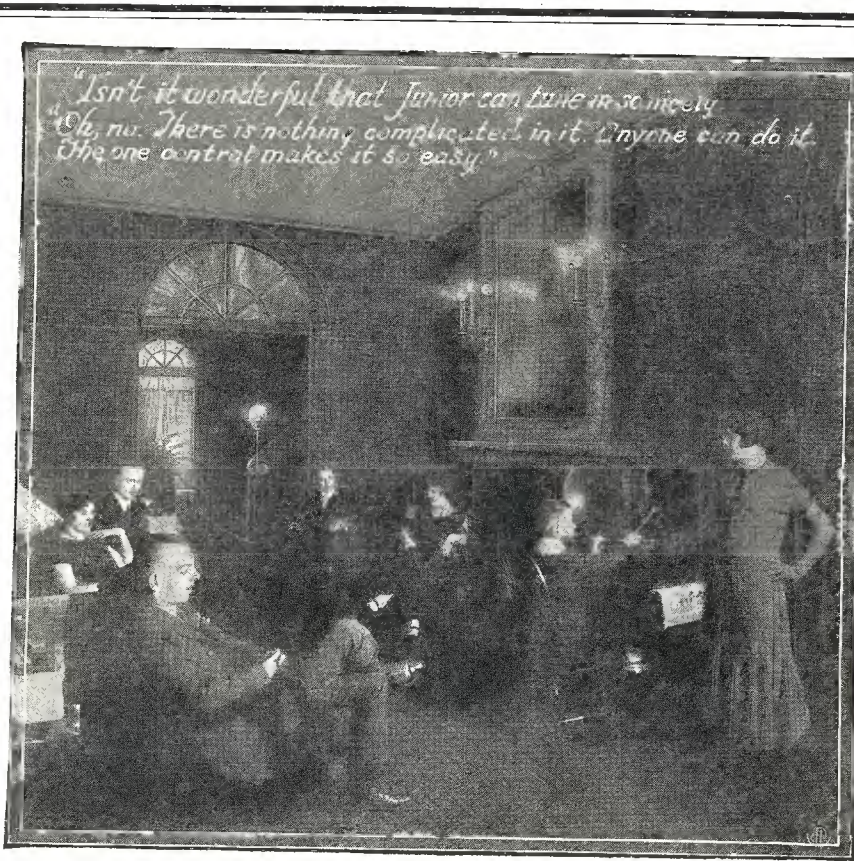 "Isn't it wonderful that Junior can tune in so nicely
"Oh, no. There is nothing complicated in it. Anyone can do it.
The one control makes it so easy."